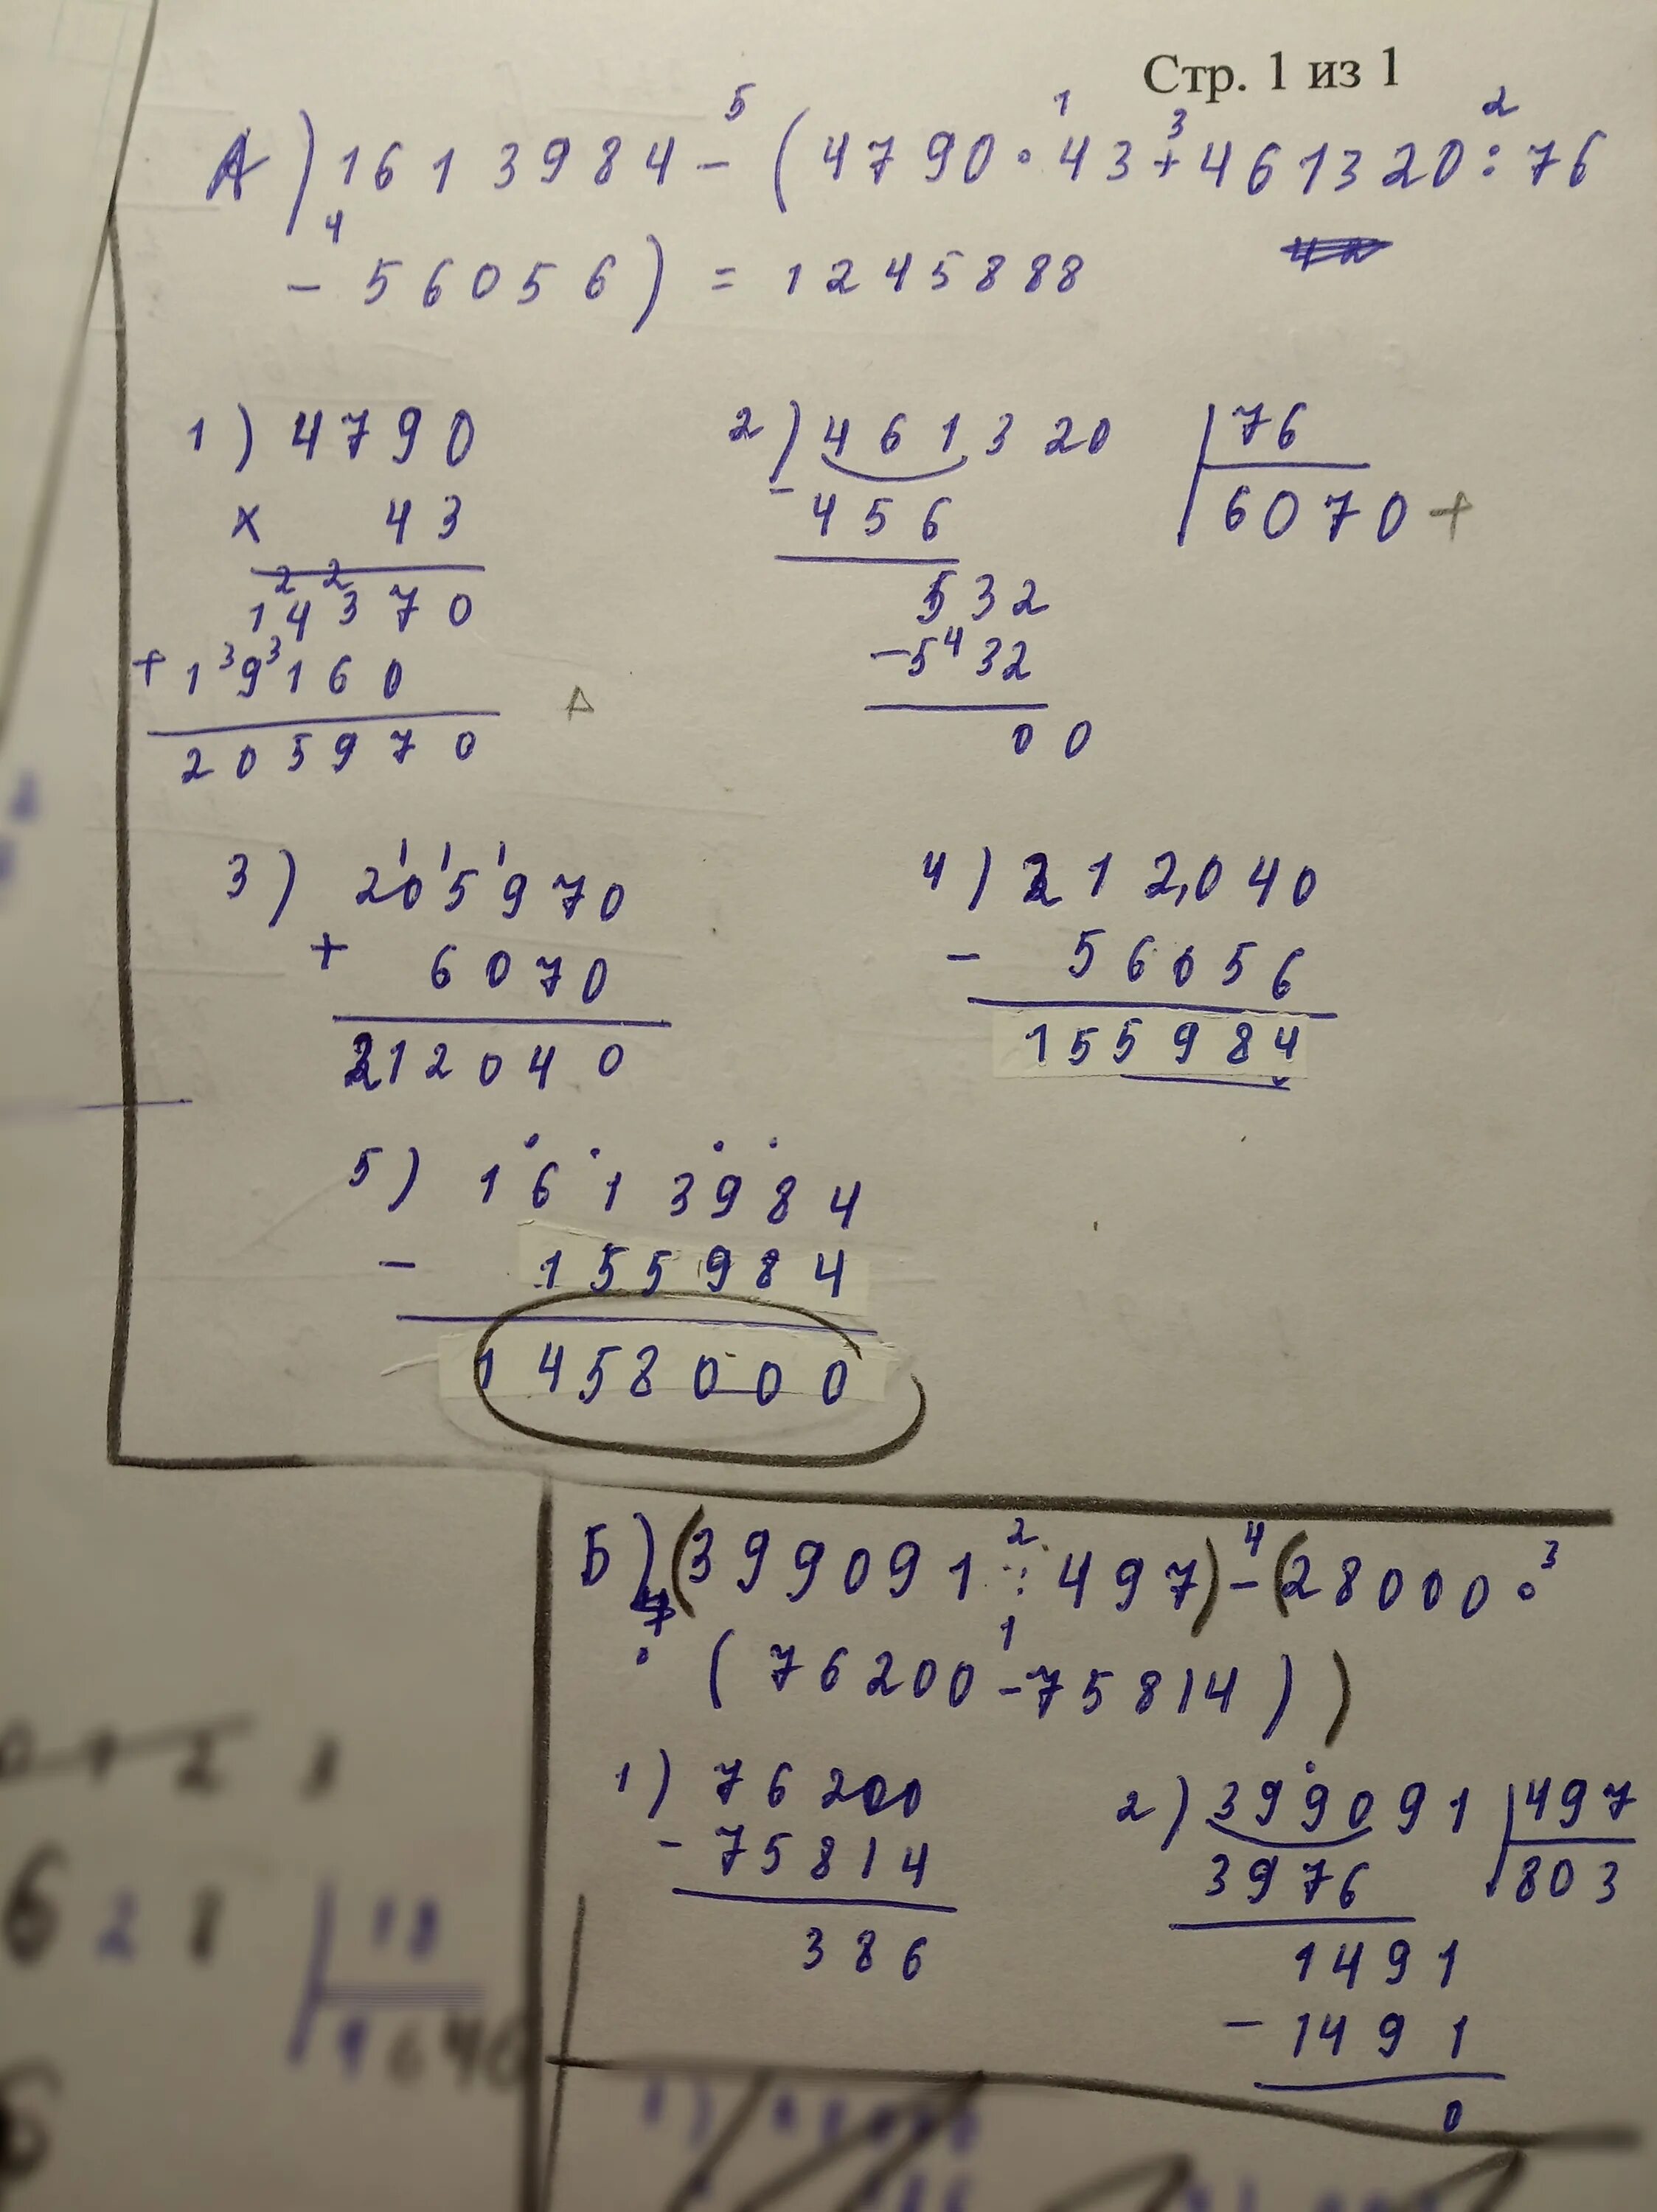 Стр. 1 из 1
5 1 3 2
А) 1613984 - (4790 · 43 + 461320 : 76
4
- 56056) = 1245888
1) 4790
× 43
2 2
14370
+ 1 3 9 3 1 6 0
205970
2) 461320 | 76
- 456 | 6070 +
532
- 5 4 32
00
3) 205970
1 1 1
+ 6070
212040
4) 212040
- 56056
155984
5) 1613984
- 155984
1458000
2 4 3
Б) (399091 : 497) - (28000 ·
1
· (76200 - 75814))
1) 76200
- 75814
386
2) 399091 | 497
3976 | 803
1491
- 1491
0
628 | 18